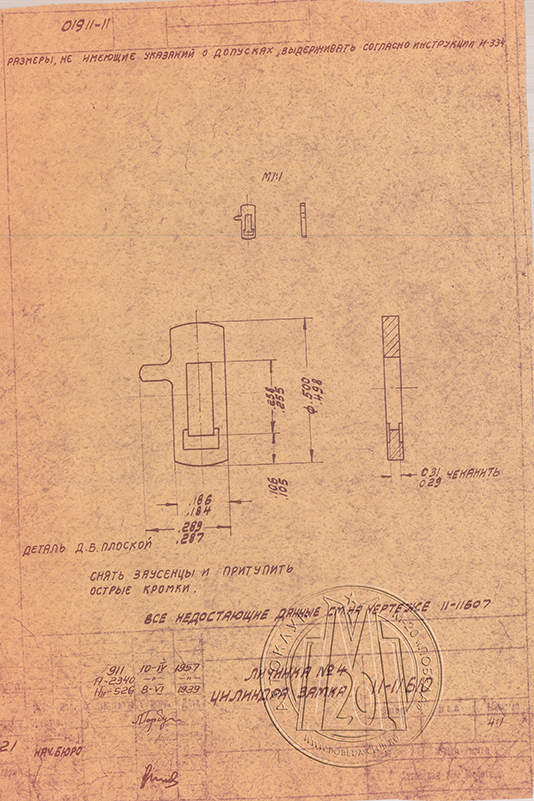 01911-11
РАЗМЕРЫ, НЕ ИМЕЮЩИЕ УКАЗАНИЙ О ДОПУСКАХ, ВЫДЕРЖИВАТЬ СОГЛАСНО ИНСТРУКЦИИ И-334
М1:1
.258
.255
ϕ.500
.498
.106
.105
.186
.184
.289
.287
031 ЧЕКАНИТЬ
0.29
ДЕТАЛЬ Д.Б. ПЛОСКОЙ
СНЯТЬ ЗАУСЕНЦЫ И ПРИТУПИТЬ
ОСТРЫЕ КРОМКИ.
ВСЕ НЕДОСТАЮЩИЕ ДАННЫЕ СМ.НА ЧЕРТЕЖЕ 11-11607
911 10-IV 1957
А-2340 -"- -"-
8-VI 1939
ЛИЧИНКА №4
ЦИЛИНДРА ЗАМКА
4:1
21 НАЧ.БЮРО
М 20